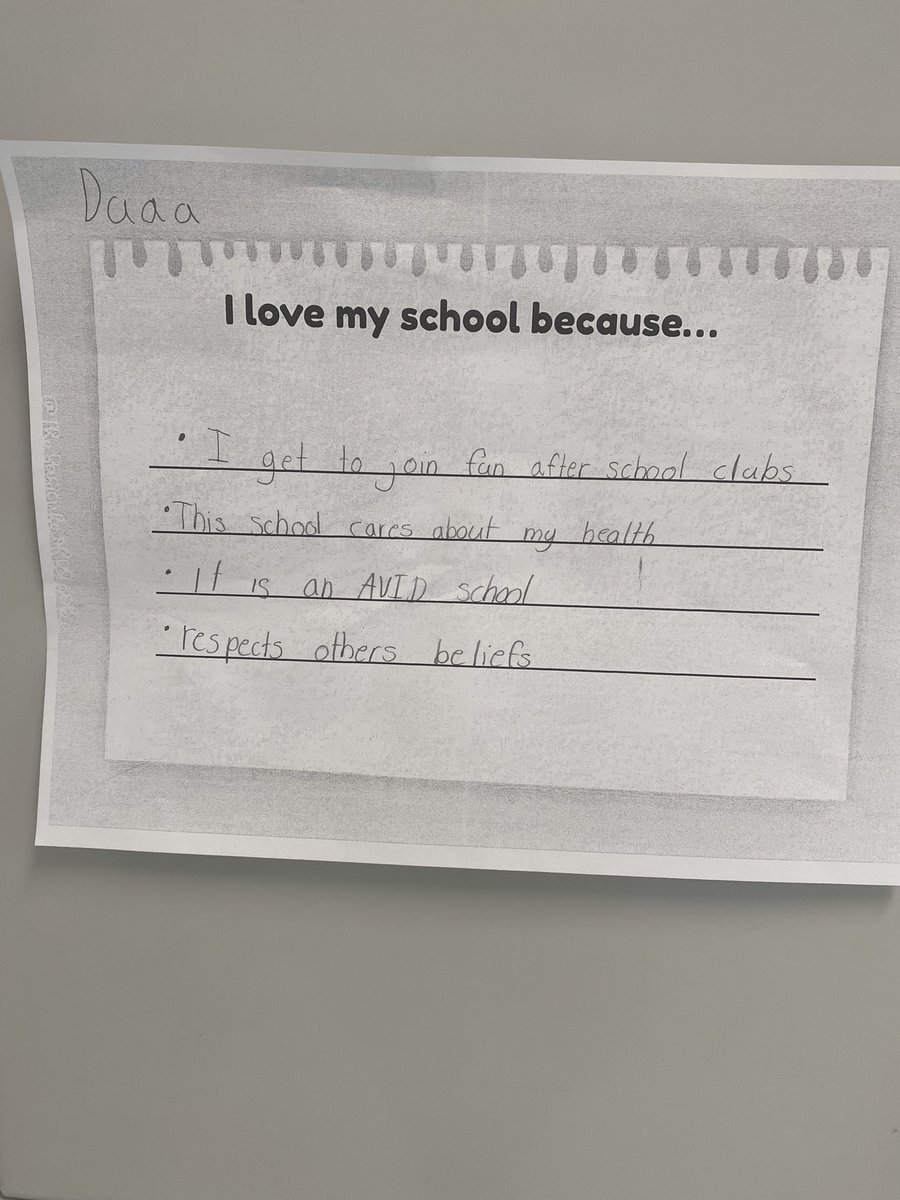 Daaa
I love my school because...
• I get to join fun after school clubs
• This school cares about my health
• It is an AVID school
• respects others beliefs